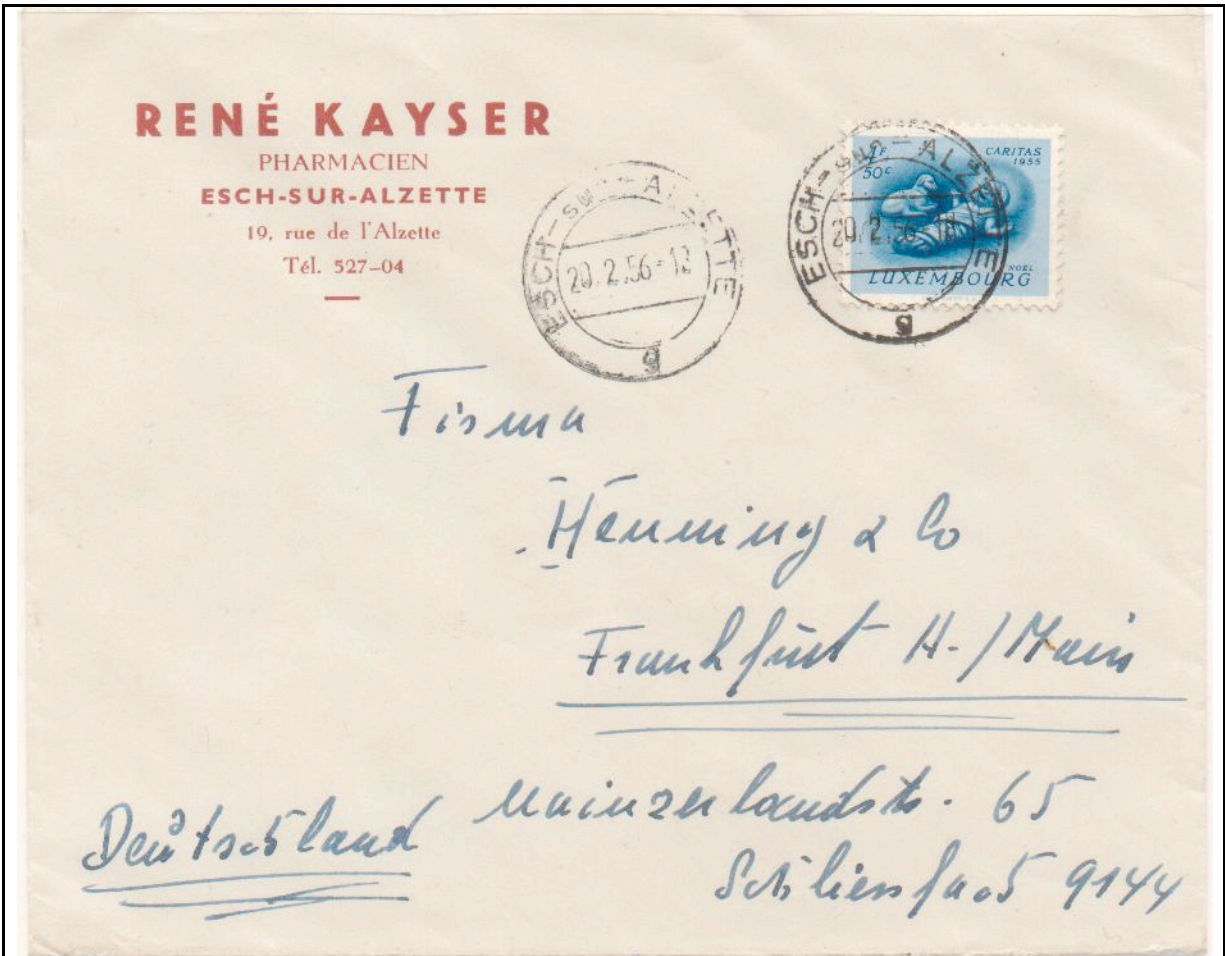 RENÉ KAYSER
PHARMACIEN
ESCH-SUR-ALZETTE
19, rue de l'Alzette
Tél. 527-04
ESCH-SUR-ALZETTE
20.2.56-18
g
ESCH-SUR-ALZETTE
20.2.56-18
g
4F
50c
CARITAS
1955
NOËL
LUXEMBOURG
Firma
Henning & Co
Frankfurt A./Main
Mainzerlandstr. 65
Deutschland
Schliessfach 9144